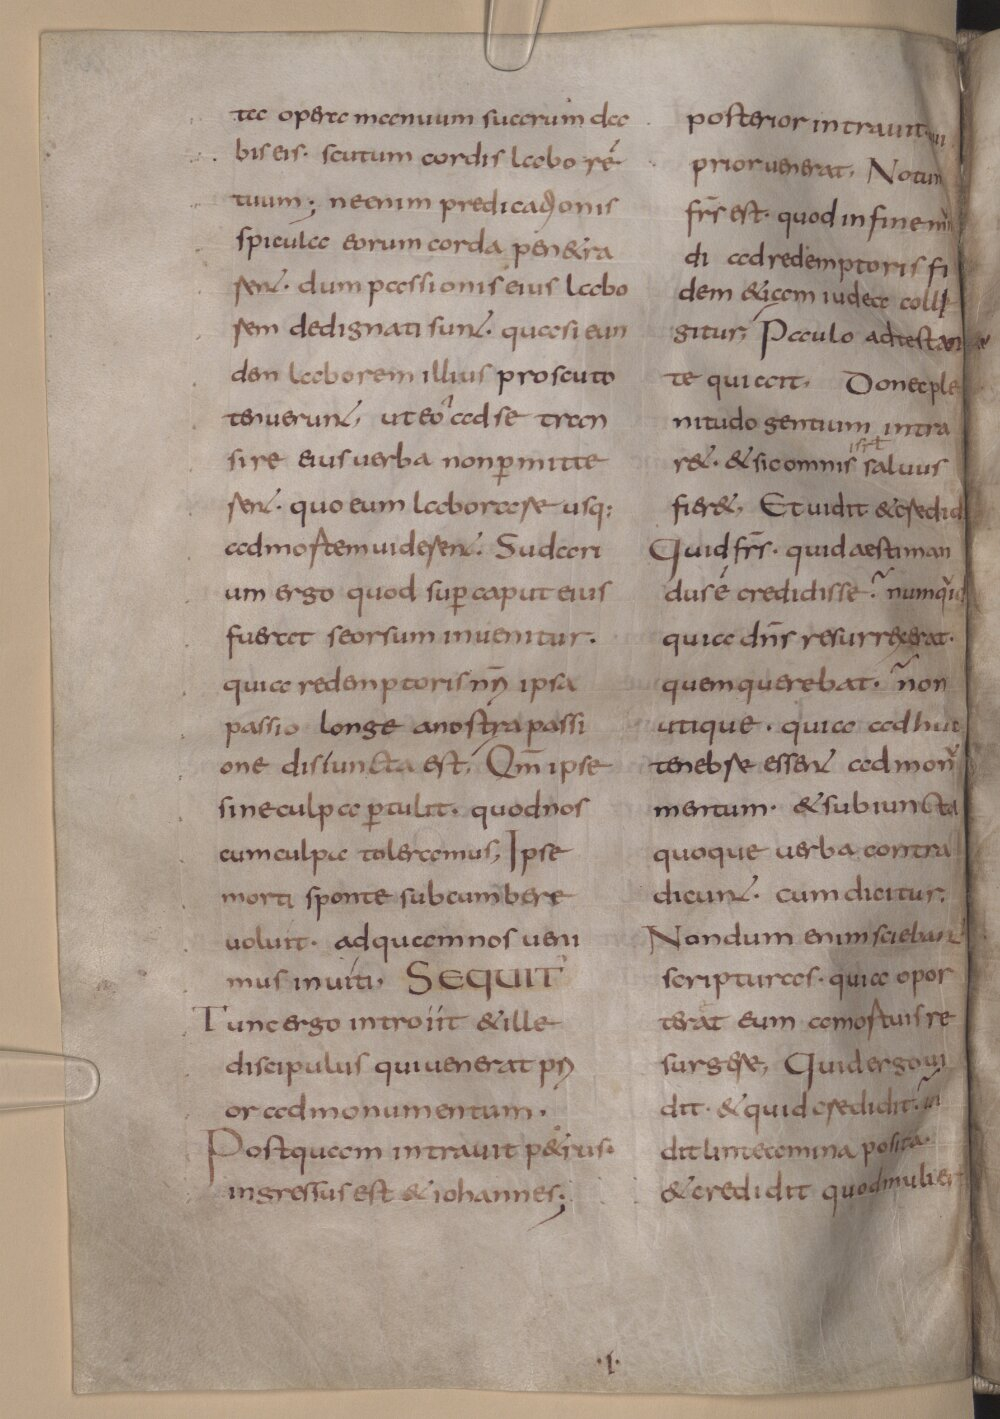 ta opera manuum suarum da
bis eis· scutum cordis labo rē
tuum; nec nim predicationis
spicula eorum corda pen&ra
ser̄· dum passionis eius labo
rem dedignati sun̄· quasi eun
dem laborem illius pro scuto
tenuerun̄, ut eo ad se tran
sire eius uerba non p̱mitte
ren̄· quo eum laborasse usq;
ad mortem uideren̄· Sudari
um ergo quod sup̱ caput eius
fuerat seorsum inuenitur·
quia redemptoris nr̄i ipsa
passio longe a nostra passi
one disiuncta est, Qm̄ ipse
sine culpa p̱tulit· quod nos
cum culpa toleramus, Ipse
morti sponte subcumbere
uoluit· ad quam nos ueni
mus inuiti, SEQUIT̄
Tunc ergo introiit & ille
discipulus qui uenerat pri
or ad monumentum·
Postquam intrauit p&rus·
ingressus est & iohannes;
posterior intrauit· qui
prior uenerat, Notum
frs̄ est· quod in fine mū
di ad redemptoris fi
dem &iam iudea colli
gitur, Paulo adtestan
te qui ait, Donec ple
nitudo gentium intra
r&· & sic omnis isrl̄ saluus
fier&, Et uidit & credid
Quid frs̄· quid aestiman
dus ē credidisse? numqui
quia dns̄ resurrexerat·
quem querebat? non
utique· quia ad huc
tenebre essen̄ ad monu
mentum· & subiuncta
quoque uerba contra
dicun̄· cum dicitur,
Nondum enim scieban̄
scripturas· quia opor
terat eum a mortuis re
surgere, Quid ergo ui
dit· & quid credidit? ui
dit linteamina posita·
& credidit quod mulier
·I·